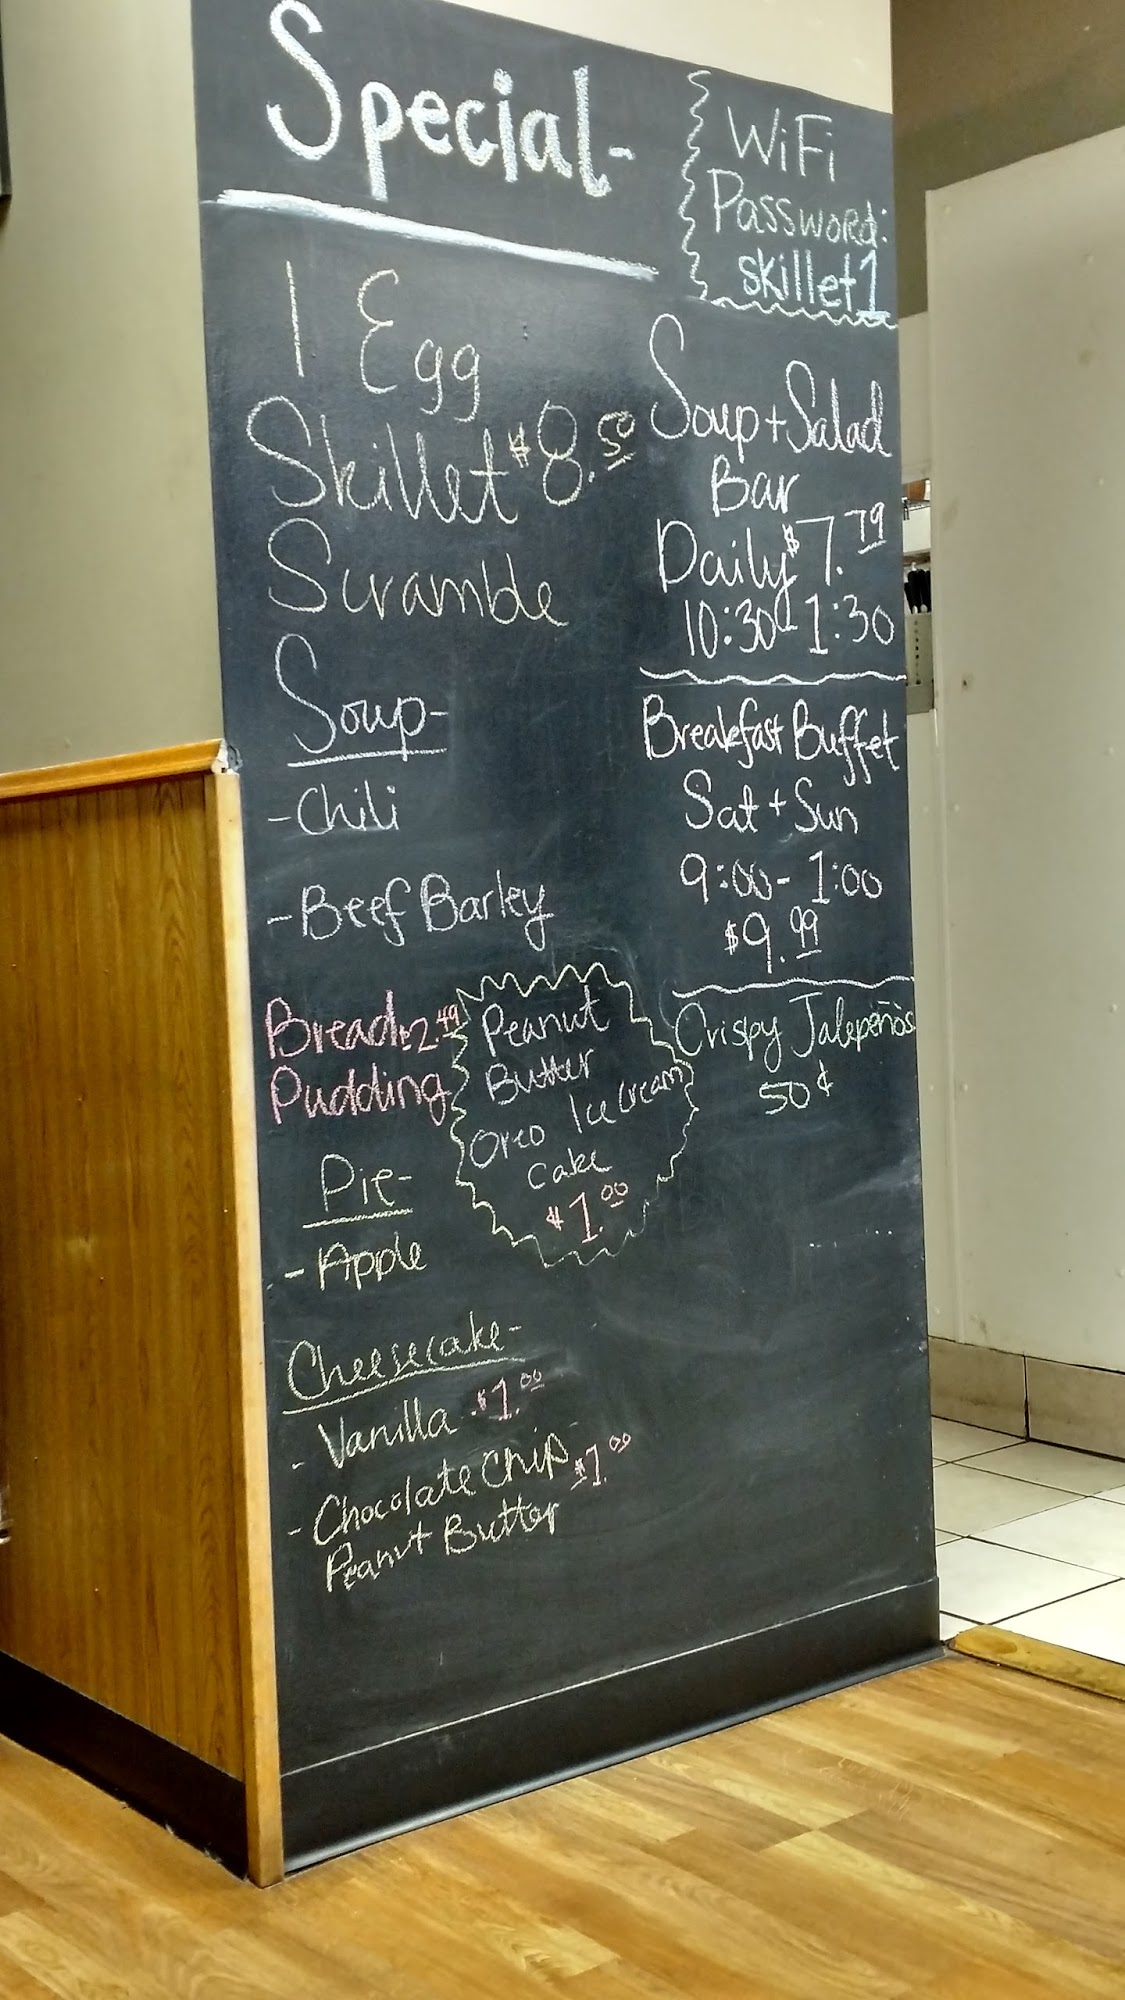 Special-
1 Egg
Skillet $8.50
Scramble
Soup-
-Chili
-Beef Barley
Bread $2.49
Pudding
Pie-
-Apple
Cheesecake-
- Vanilla $1.00
- Chocolate Chip $1.00
Peanut Butter
Peanut
Butter
Oreo Ice Cream
Cake
$1.00
WiFi
Password:
skillet1
Soup + Salad
Bar
Daily $7.79
10:30-1:30
Breakfast Buffet
Sat + Sun
9:00-1:00
$9.99
Crispy Jalepeños
50¢